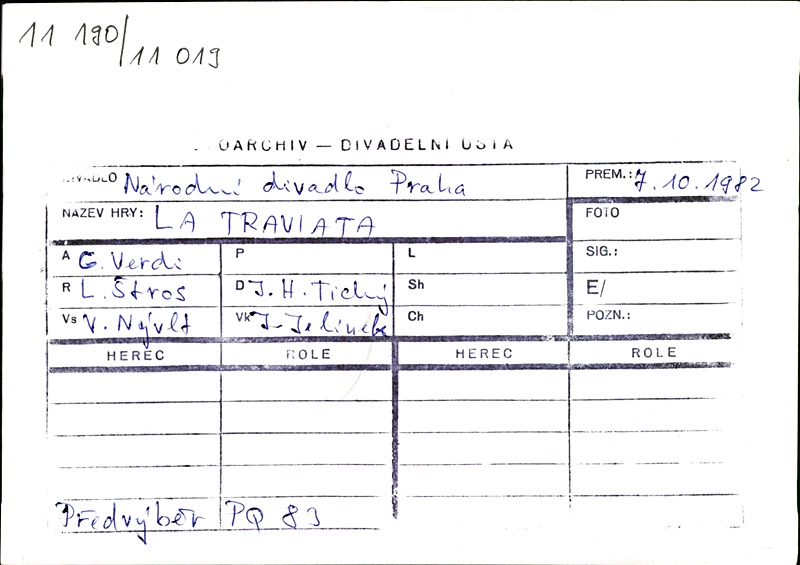 11 190/11 019
OARCHIV — DIVADELNÍ ÚSTA
DIVADLO Národní divadlo Praha PREM.: 7.10.1982
NÁZEV HRY: LA TRAVIATA FOTO
A G. Verdi P L SIG.:
R L. Štros D J. H. Tichý Sh E/
Vs V. Nývlt Vk J. Jelínek Ch POZN.:
HEREC ROLE HEREC ROLE
Předvýběr PQ 83